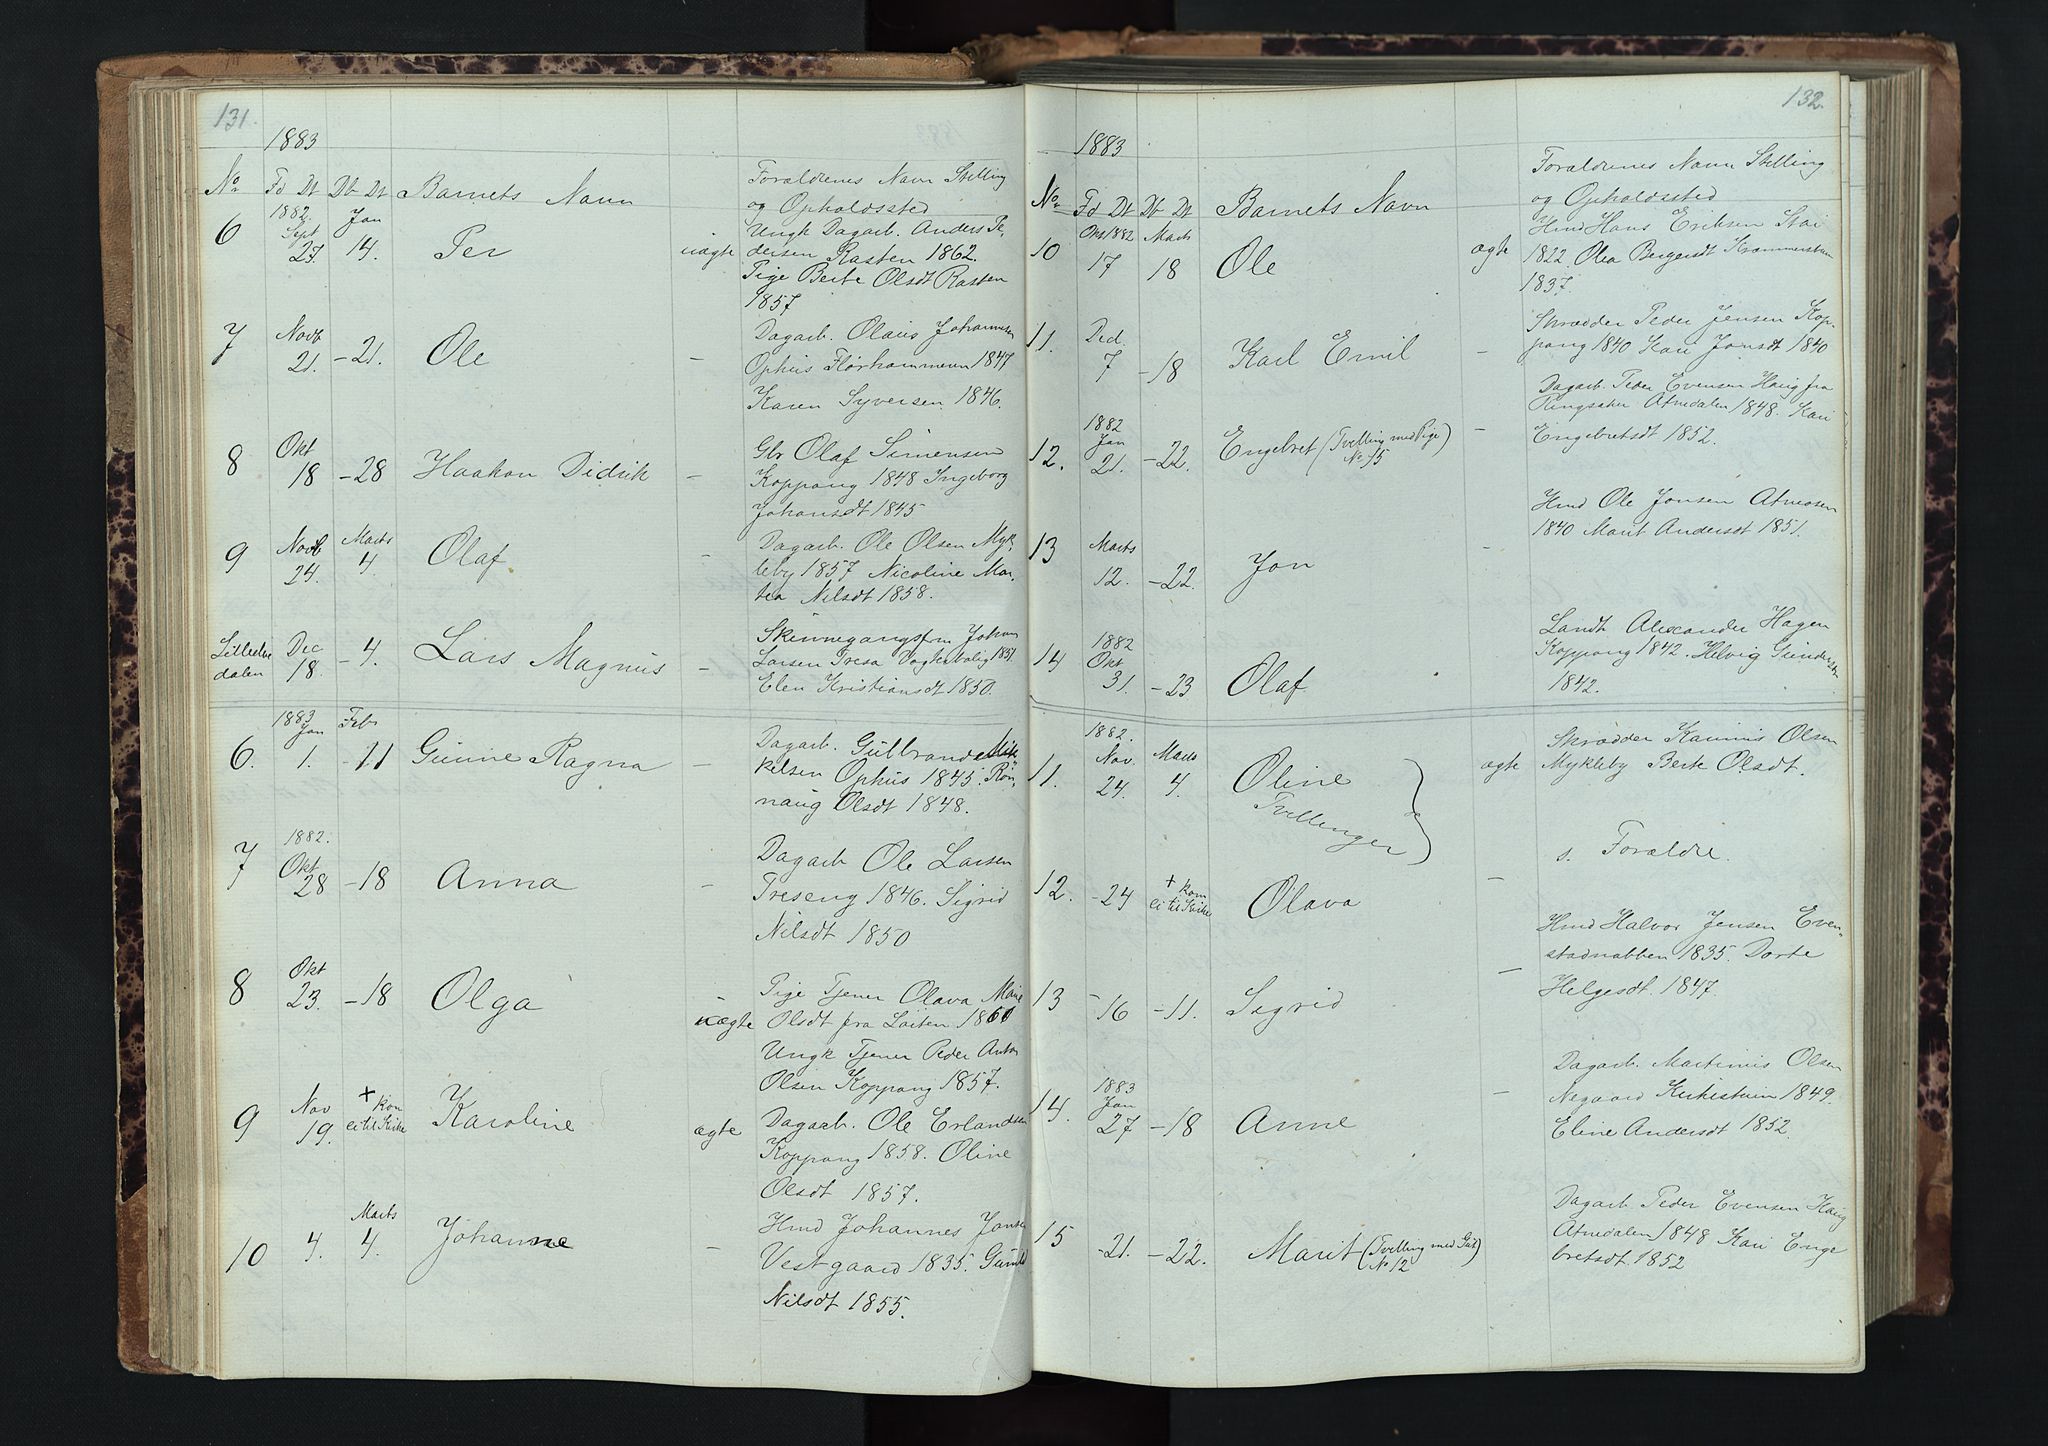 131.
1883
No Fd Dt Db Dt Barnets Navn Forældrenes Navn Stilling
og Opholdssted
6 1882 Sept 27. Jan 14. Per uægte Ungk Dagarb. Anders Pe-
dersen Rasten 1862.
Pige Berte Olsdt Rasten
1857
7 Novb 21. - 21. Ole - Dagarb. Olaus Johannesen
Ophus Flørhammeren 1847
Karen Syversen 1846.
8 Okt 18 - 28 Haakon Didrik - Gbr Olaf Simensen
Koppang 1848 Ingeborg
Johansdt 1845
9 Novb 24. Marts 4. Olaf - Dagarb. Ole Olsen Myk-
leby 1857 Nicoline Mar-
tea Nilsdt 1858.
Lilleelve
dalen Dec 18. - 4. Lars Magnus - Skinnegangsfm Johan
Larsen Tresa Vogterbolig 1851.
Elen Kristiansdt 1850.
6. 1883 Jan 1. Febr - 11 Gunne Ragna - Dagarb. Gulbrand Mik-
kelsen Ophus 1845. Røn-
naug Olsdt 1848.
7 1882. Okt 28 - 18 Anna - Dagarb Ole Larsen
Treseng 1846. Sigrid
Nilsdt 1850
8 Okt 23. - 18 Olga - uægte Pige Tjener Olava Marie
Olsdt fra Løiten 1860
Ungk Tjener Peder Anton
Olsen Koppang 1857.
9 Nov 19. + kom
ei til Kirke Karoline ægte Dagarb. Ole Erlandsen
Koppang 1858. Oline
Olsdt 1857.
10 4. Marts 4. Johanne - Hmd Johannes Jonsen
Vestgaard 1835. Gunild
Nilsdt 1855.
132.
1883
No. Fd Dt Db Dt Barnets Navn Forældrenes Navn Stilling
og Opholdssted
10 Okt 1882 17 Marts 18 Ole ægte Hmd Hans Eriksen Stai
1822. Olea Bergersdt
1837.
11. Ded. 7 - 18 Karl Emil - Skrædder Peder Jensen Kop-
pang 1840 Kari Jonsdt 1840
12. 1882 Jan 21. - 22. Engebret (Tvilling med Pige)
No 15 - Dagarb. Peder Evensen Haug fra
Ringsaker Atnedalen 1848. Kari
Engebretsdt 1852.
13 Marts 12. - 22. Jon - Hmd Ole Jonsen Atneosen
1840 Marit Andersdt 1851.
14 1882 Okt 31. - 23 Olaf Landh Alexander Hagen
Koppang 1842. Helvig Gundersen
1842.
11. 1882. Nov. 24. Marts 4. Oline
Tvillinger ægte Skrædder Olsen
Mykleby Berte Olsdt.
12. - 24 + kom
ei til Kirke Olava - s. Forældre.
13 - 16 - 11. Sigrid - Hmd Halvor Jensen Even-
stadnabben 1835. Dorte
Helgesdt. 1847.
14. 1883 Jan 27 - 18 Anne - Dagarb. Martinus Olsen
Negaard 1849.
Eline Andersdt 1852.
15 - 21. - 22. Marit (Tvilling med Gut)
No 12 Dagarb. Peder Evensen Haug
Atnedalen 1848 Kari Enge
bretsdt 1852